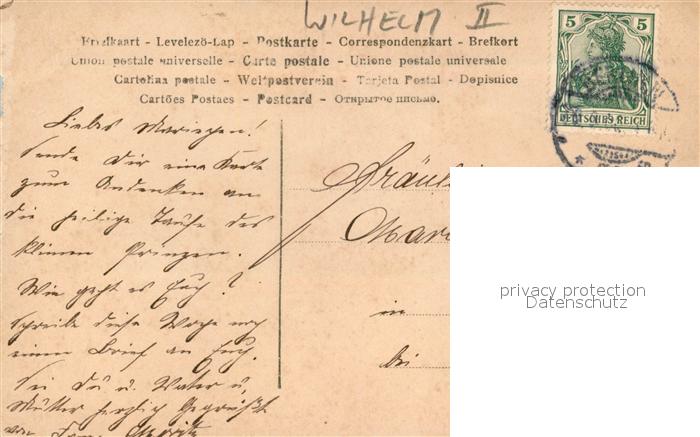 WILHELM II
Brefkaart - Levelezö-Lap - Postkarte - Correspondenzkart - Brefkort
Union postale universelle - Carte postale - Unione postale universale
Cartolina postale - Weltpostverein - Tarjeta Postal - Dopisnice
Cartões Postaes - Postcard - Открытое письмо.
5 5
DEUTSCHES REICH
Liebes Mariechen!
Sende Dir eine Karte
zum Andenken an
die heilige Taufe des
kleinen Prinzen.
Wie geht es Euch?
Schreibe diese Woche noch
einen Brief an Euch.
Sei Du u. Vater u.
Mutter herzlich Gegrüßt
von
Fräul
Mar
in
bei
privacy protection
Datenschutz